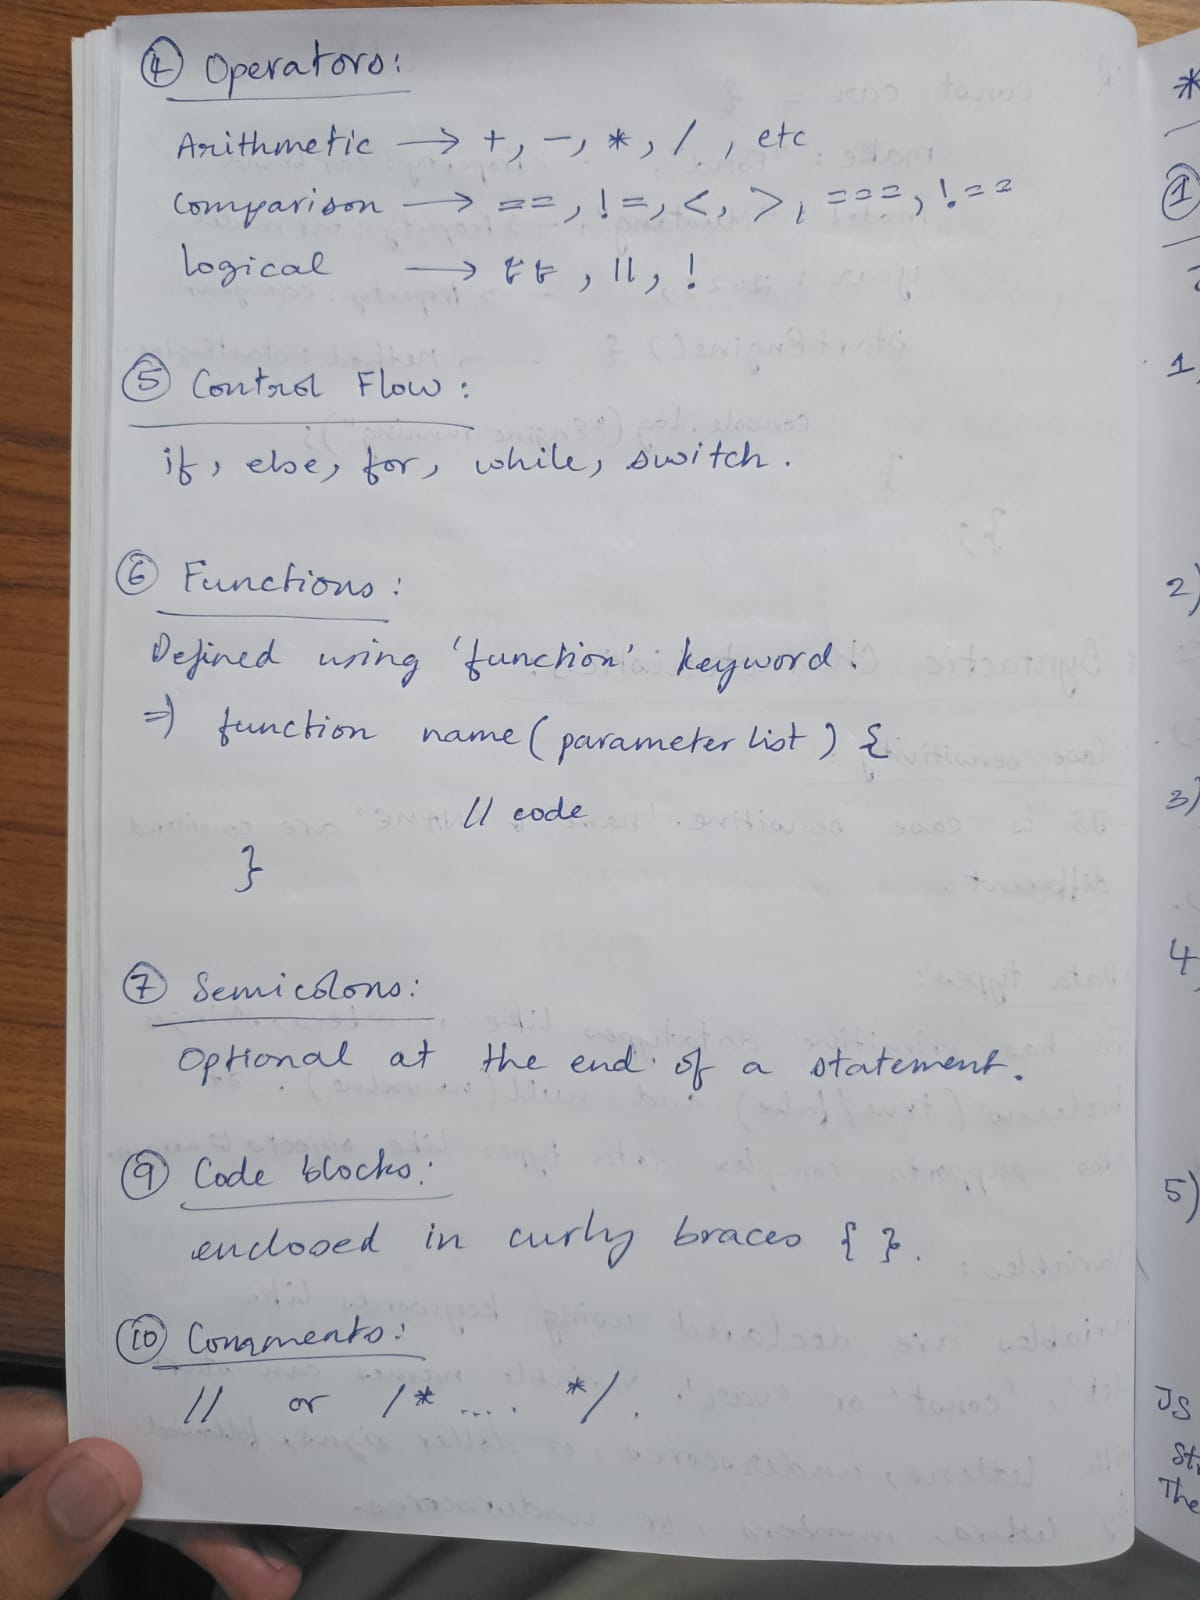 ④ Operators:
Arithmetic → +, -, *, /, etc
Comparison → ==, !=, <, >, ===, !==
Logical → &&, ||, !
⑤ Control Flow:
if, else, for, while, switch.
⑥ Functions:
Defined using 'function' keyword.
⇒ function name (parameter list) {
// code
}
⑦ Semicolons:
Optional at the end of a statement.
⑨ Code blocks:
enclosed in curly braces { }.
⑩ Comments:
// or /* .... */.
*
①
1,
2)
3)
4,
5)
JS
The